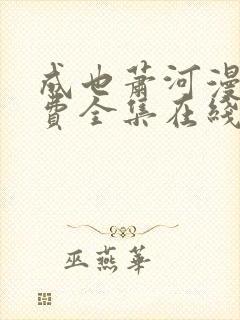 成也萧河漫
费全集在线
巫燕华